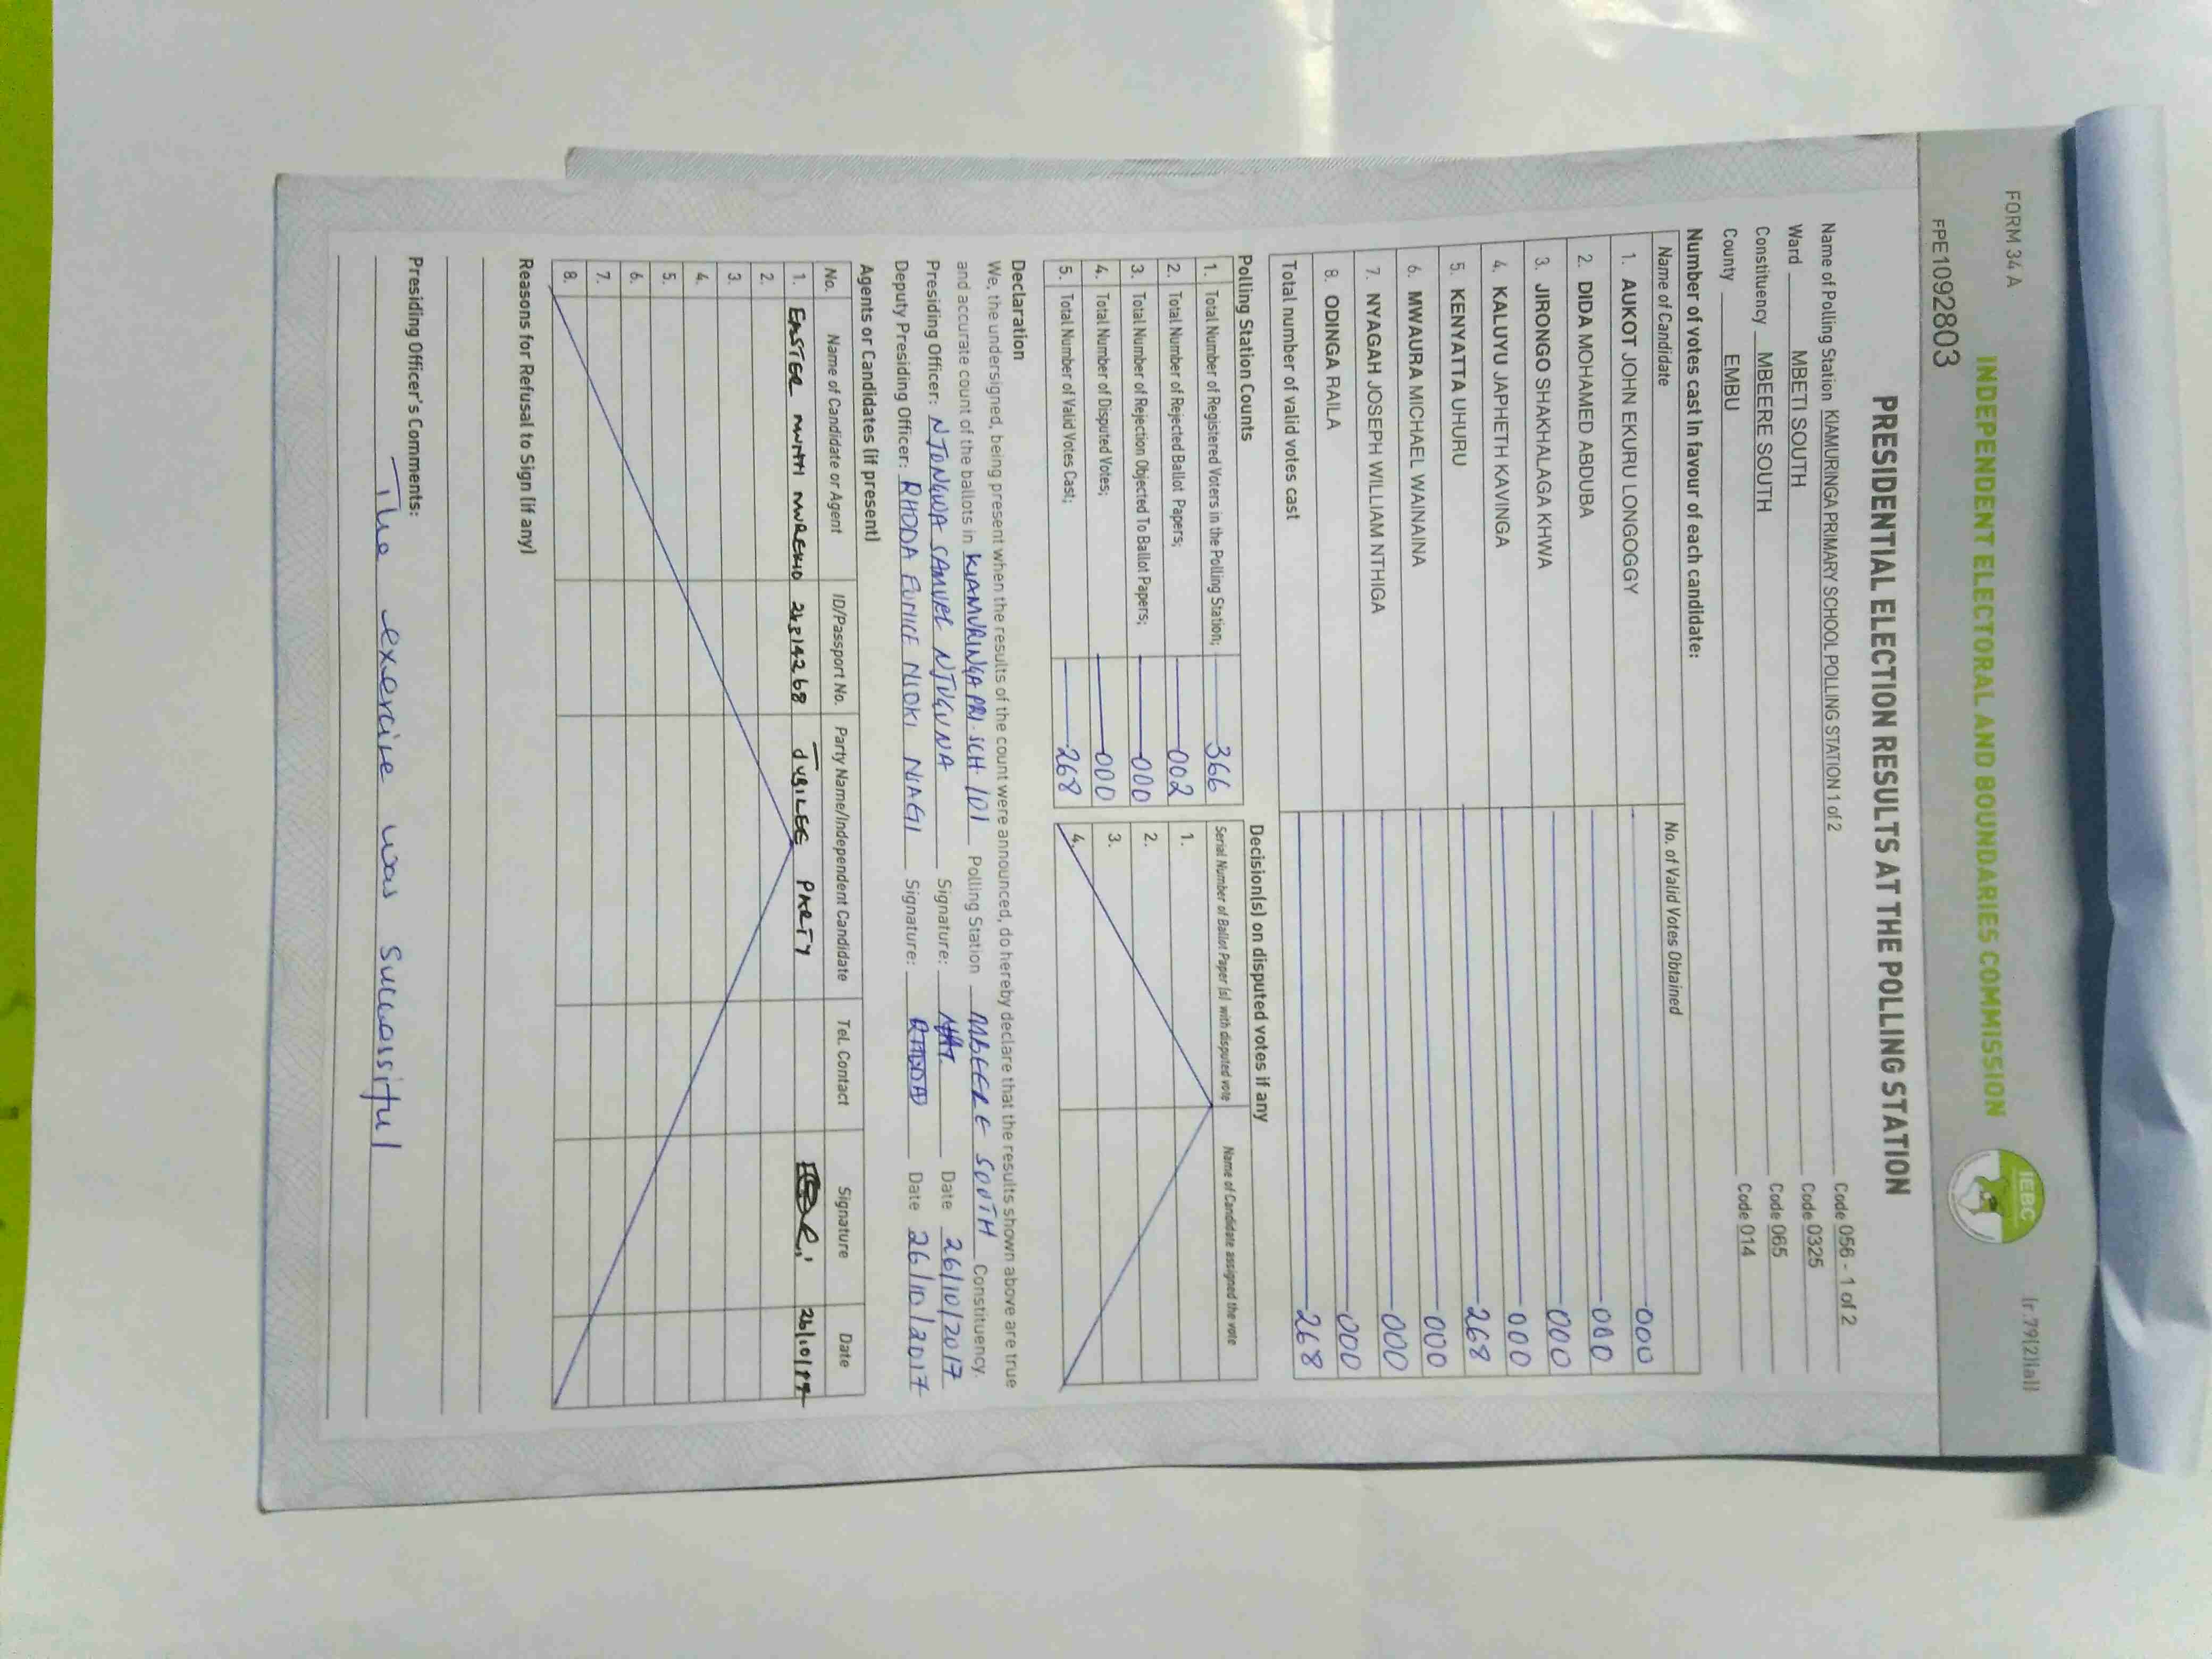 FORM 34 A
(r.79(2)(a))
INDEPENDENT ELECTORAL AND BOUNDARIES COMMISSION
IEBC
FPE1092803
PRESIDENTIAL ELECTION RESULTS AT THE POLLING STATION
Name of Polling Station KIAMURINGA PRIMARY SCHOOL POLLING STATION 1 of 2 Code 056 - 1 of 2
Ward MBETI SOUTH Code 0325
Constituency MBEERE SOUTH Code 065
County EMBU Code 014
Number of votes cast in favour of each candidate:
Name of Candidate No. of Valid Votes Obtained
1. AUKOT JOHN EKURU LONGOGGY 000
2. DIDA MOHAMED ABDUBA 000
3. JIRONGO SHAKHALAGA KHWA 000
4. KALUYU JAPHETH KAVINGA 000
5. KENYATTA UHURU 268
6. MWAURA MICHAEL WAINAINA 000
7. NYAGAH JOSEPH WILLIAM NTHIGA 000
8. ODINGA RAILA 000
Total number of valid votes cast 268
Polling Station Counts
1. Total Number of Registered Voters in the Polling Station; 366
2. Total Number of Rejected Ballot Papers; 002
3. Total Number of Rejection Objected To Ballot Papers; 000
4. Total Number of Disputed Votes; 000
5. Total Number of Valid Votes Cast; 268
Decision(s) on disputed votes if any
Serial Number of Ballot Paper (s) with disputed vote Name of Candidate assigned the vote
1.
2.
3.
4.
Declaration
We, the undersigned, being present when the results of the count were announced, do hereby declare that the results shown above are true
and accurate count of the ballots in KIAMURINGA PRI. SCH 101 Polling Station MBEERE SOUTH Constituency.
Presiding Officer: SAMUEL Signature: Date 26/10/2017
Deputy Presiding Officer: RHODA EUNICE NJOKI NJAGI Signature: RHODA Date 26/10/2017
Agents or Candidates (if present)
No. Name of Candidate or Agent ID/Passport No. Party Name/Independent Candidate Tel. Contact Signature Date
1. EASTER JUBILEE PARTY 26/10/17
2.
3.
4.
5.
6.
7.
8.
Reasons for Refusal to Sign (if any)
Presiding Officer's Comments:
The exercise was successful